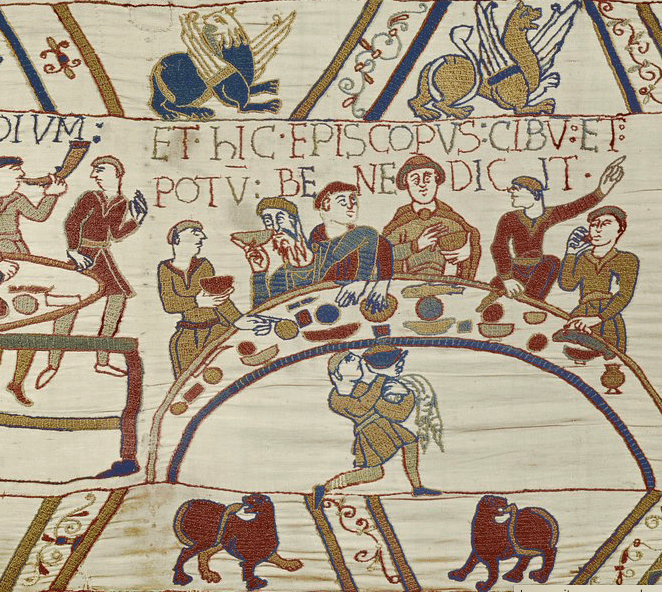 DIVM:
ET· hIC·EPISCOPVS:CIBV̄:ET:
POTV̄: BENEDICIT·